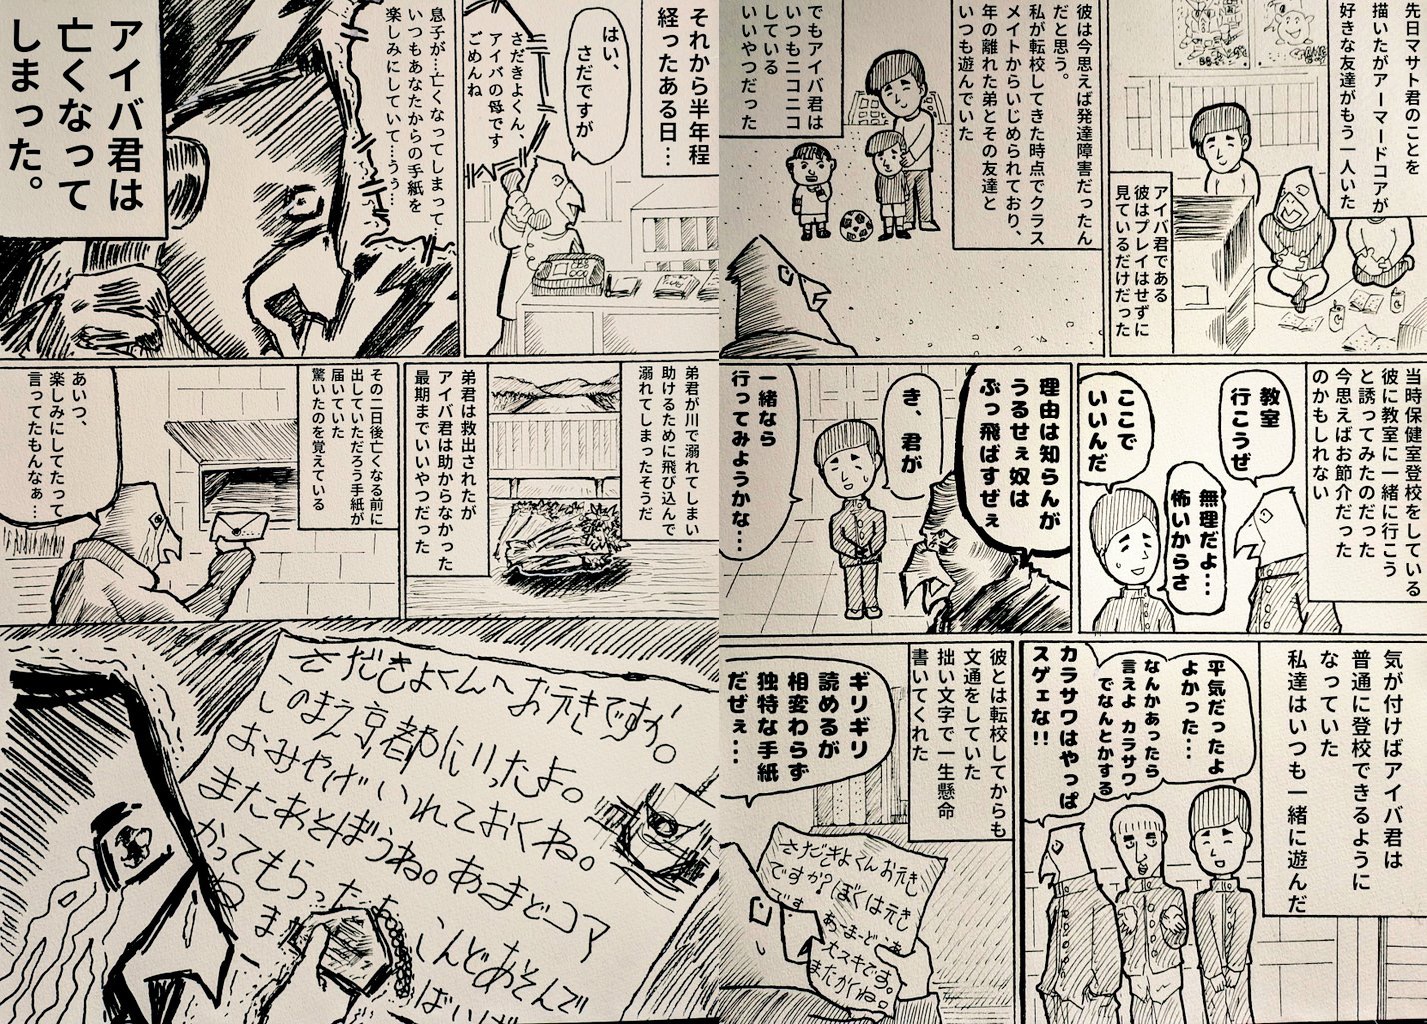 先日マサト君のことを
描いたがアーマードコアが
好きな友達がもう一人いた
アイバ君である
彼はプレイはせずに
見ているだけだった
彼は今思えば発達障害だったん
だと思う。
私が転校してきた時点でクラス
メイトからいじめられており、
年の離れた弟とその友達と
いつも遊んでいた
でもアイバ君は
いつもニコニコ
している
いいやつだった
当時保健室登校をしている
彼に教室に一緒に行こう
と誘ってみたのだった
今思えばお節介だった
のかもしれない
教室
行こうぜ
無理だよ…
怖いからさ
ここで
いいんだ
理由は知らんが
うるせぇ奴は
ぶっ飛ばすぜぇ
き、君が
一緒なら
行ってみようかな…
気が付けばアイバ君は
普通に登校できるように
なっていた
私達はいつも一緒に遊んだ
平気だったよ
よかった…
なんかあったら
言えよ カラサワ
でなんとかする
カラサワはやっぱ
スゲェな!!
彼とは転校してからも
文通をしていた
拙い文字で一生懸命
書いてくれた
ギリギリ
読めるが
相変わらず
独特な手紙
だぜぇ…
さだきよくんお元き
ですか?ぼくは元き
です。
あーまーどこあ
大スキです。
またがね。
それから半年程
経ったある日…
はい、
さだですが
さだきよくん、
アイバの母です
ごめんね
息子が…亡くなってしまって…
いつもあなたからの手紙を
楽しみにしていて…うぅ…
アイバ君は
亡くなって
しまった。
弟君が川で溺れてしまい
助けるために飛び込んで
溺れてしまったそうだ
弟君は救出されたが
アイバ君は助からなかった
最期までいいやつだった
その二日後亡くなる前に
出していただろう手紙が
届いていた
驚いたのを覚えている
あいつ、
楽しみにしてたって
言ってたもんなぁ…
さだきよくんへお元きですか。
このまえ京都にいったよ。
おみやげいれておくね。
またあそぼうね。あまどコア
かってもらった
こんどあそんで
ね ま
ばいばい